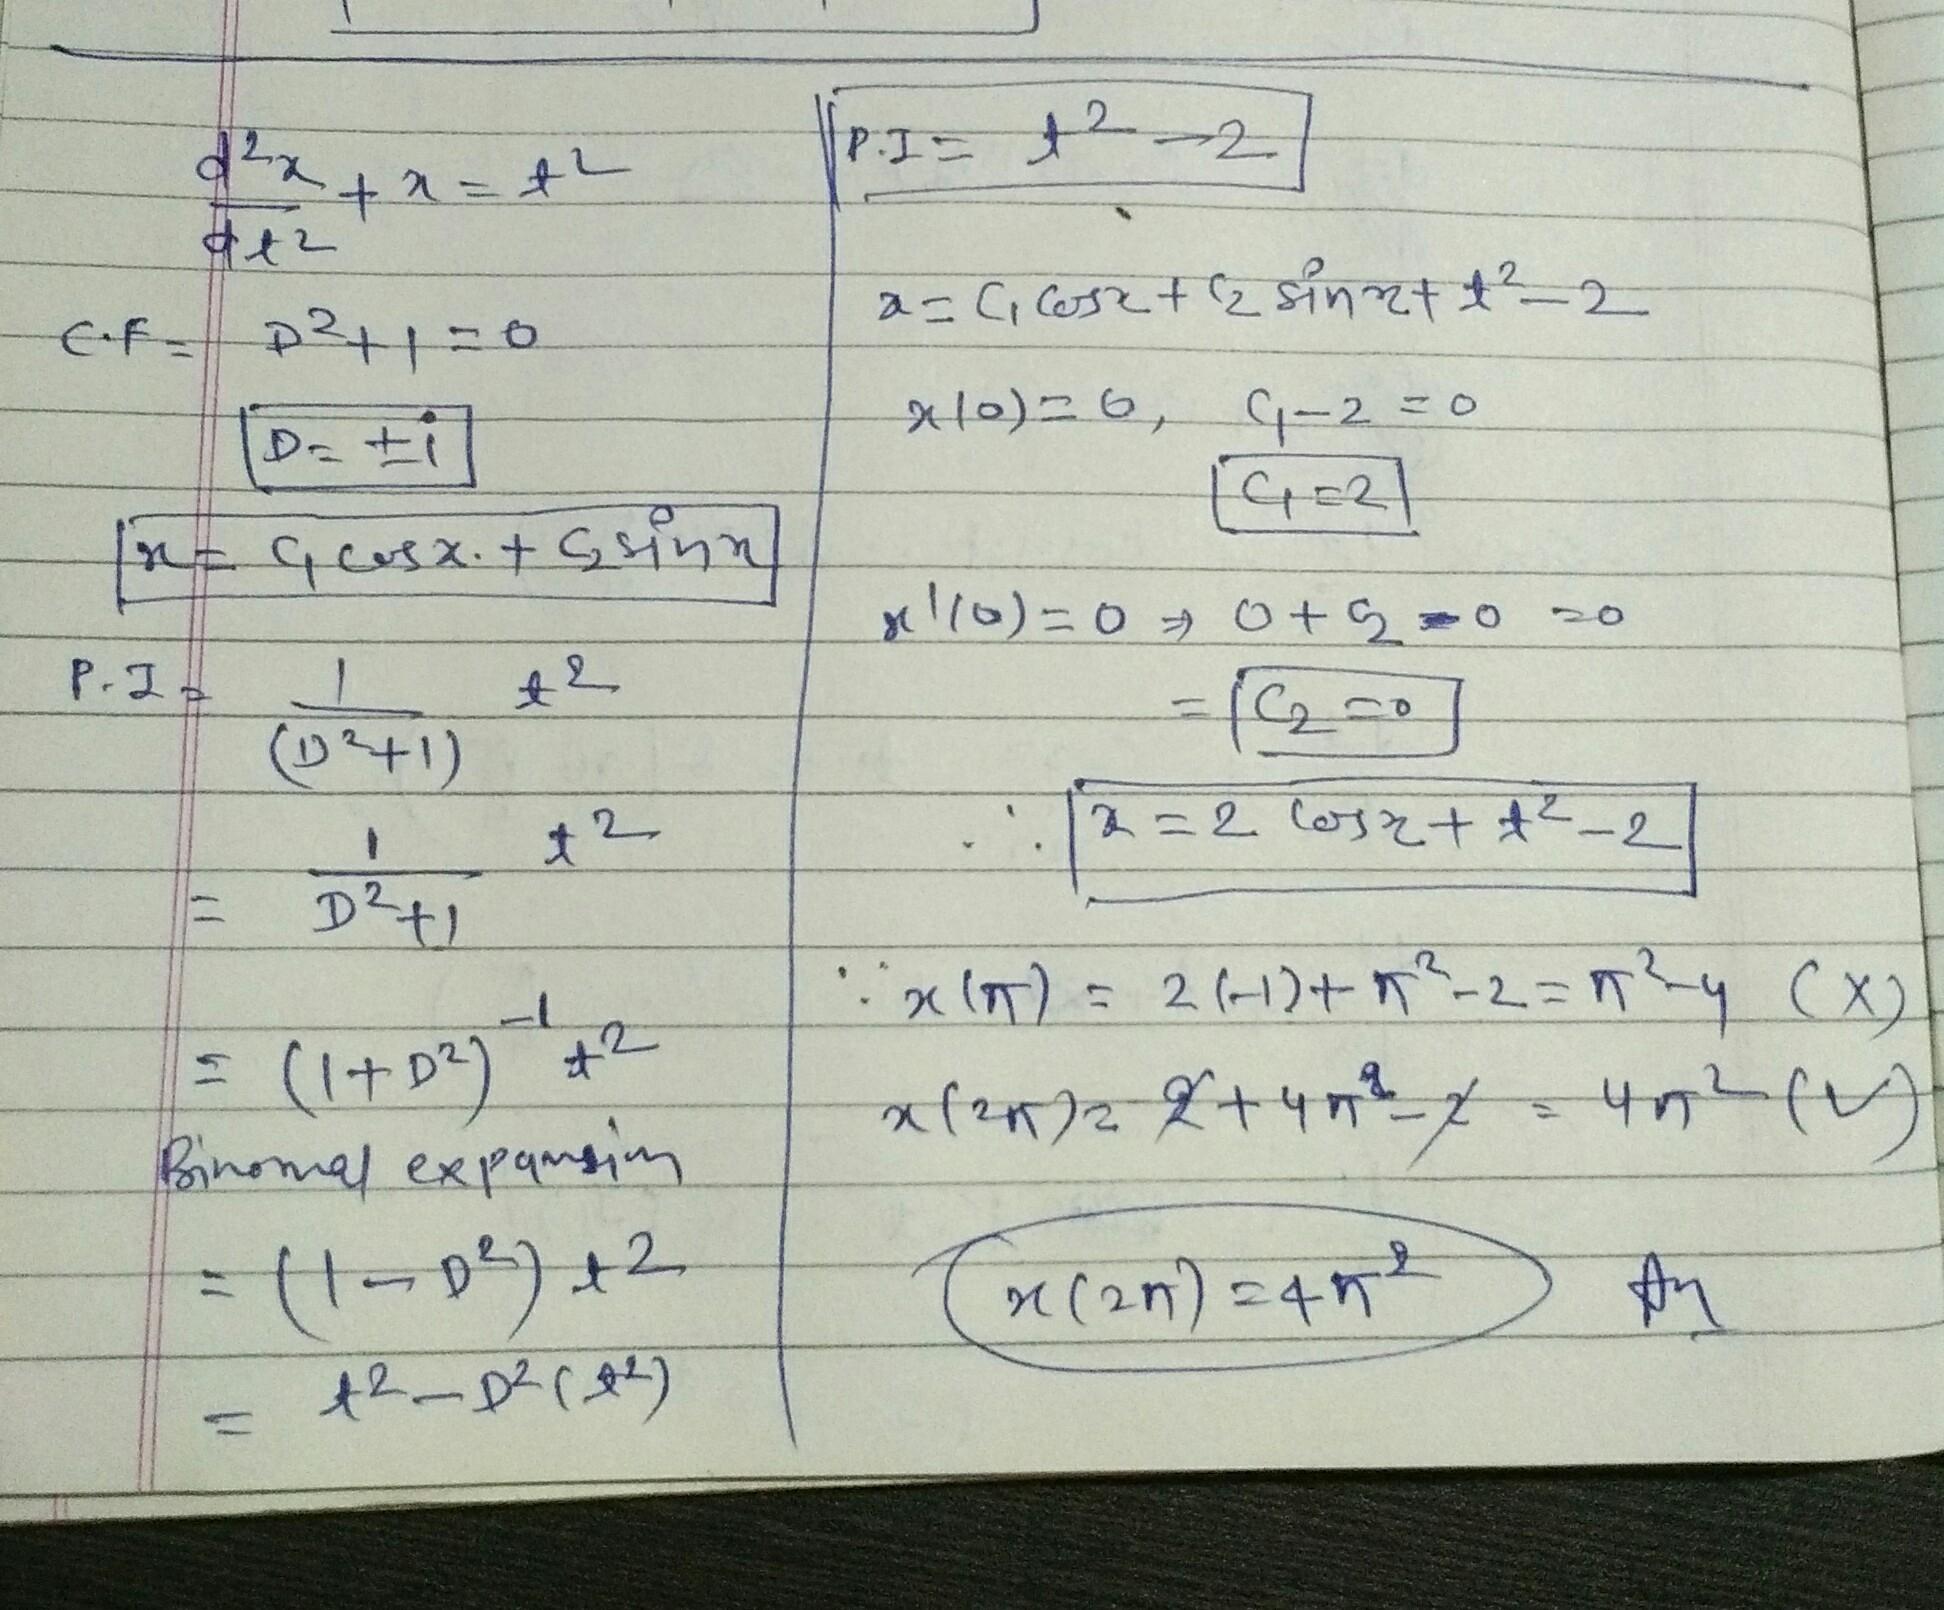 d²x/dt² + x = t²
C.F = D²+1 = 0
D = ±i
x = C₁ cosx. + C₂ sinx
P.I = 1/(D²+1) t²
= 1/D²+1 t²
= (1+D²)⁻¹ t²
Binomal expansion
= (1-D²) t²
= t² - D²(t²)
P.I = t² - 2
x = C₁ cosx + C₂ sinx + t² - 2
x(0) = 0, C₁ - 2 = 0
C₁ = 2
x'(0) = 0 ⇒ 0 + C₂ - 0 = 0
= C₂ = 0
∴ x = 2 cosx + t² - 2
∵ x(π) = 2(-1) + π² - 2 = π² - 4 (X)
x(2π) = 2 + 4π² - 2 = 4π² (✓)
x(2π) = 4π² An